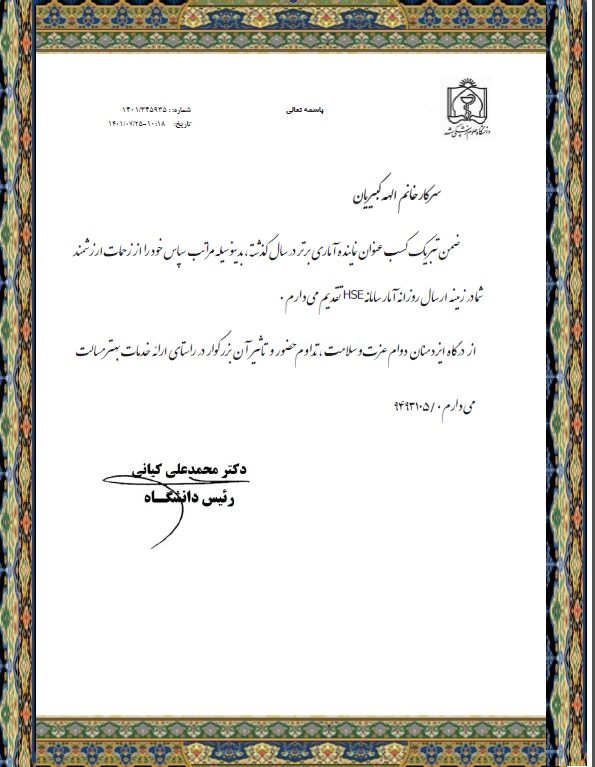 دانشگاه علوم پزشکی مشهد
باسمه تعالی
شماره: ۱۴۰۱/۳۴۵۹۳۵
تاریخ: ۱۰:۱۸-۱۴۰۱/۰۷/۲۵
سرکار خانم الهه کبیریان
ضمن تبریک کسب عنوان نماینده آماری برتر در سال گذشته، بدینوسیله مراتب سپاس خود را از زحمات ارزشمند
شما در زمینه ارسال روزانه آمار سامانه HSE تقدیم می‌دارم .
از درگاه ایزدمنان دوام عزت و سلامت ، تداوم حضور و تاثیر آن بزرگوار در راستای ارائه خدمات بهتر مسالت
می دارم . / ۹۴۹۳۱۰۵
دکتر محمدعلی کیانی
رئیس دانشگاه